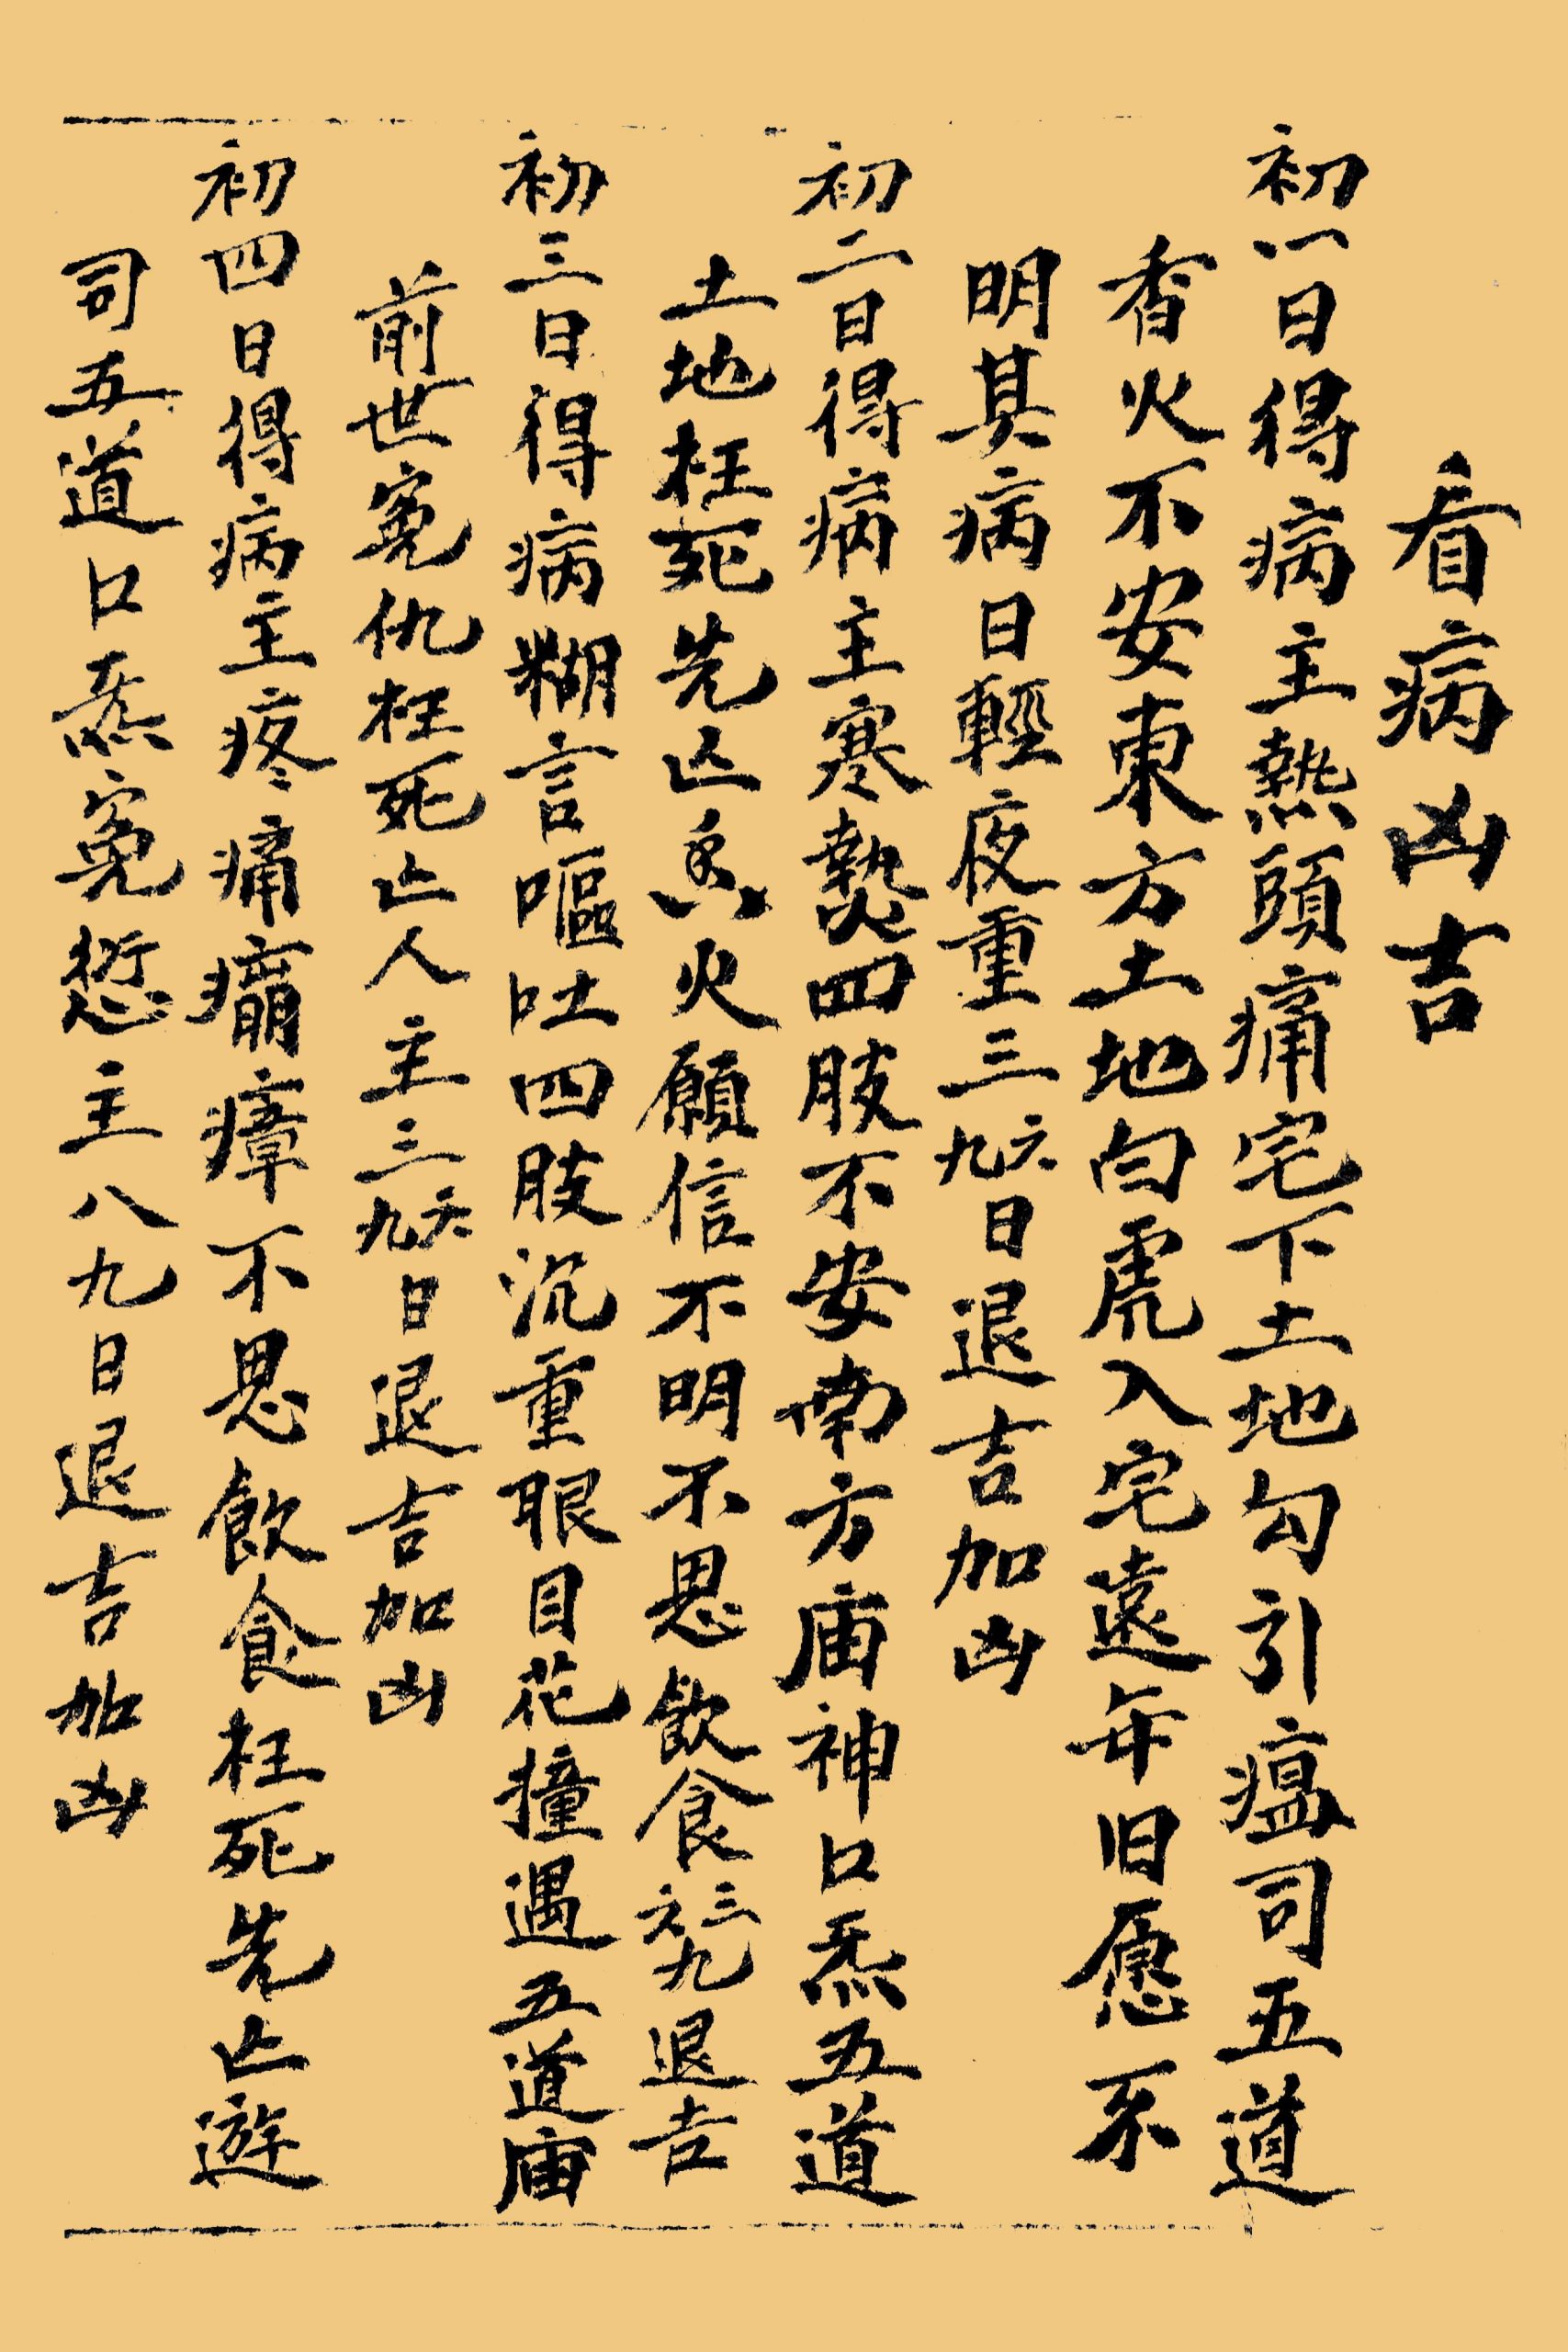 看病凶吉
初一日得病主熱頭痛宅下土地勾引瘟司五道
香火不安東方土地白虎入宅遠年旧愿不
明其病日輕夜重三六九日退吉加凶
初二日得病主寒熱四肢不安南方庙神口炁五道
土地枉死先亡香火願信不明不思飲食三六九退吉
初三日得病糊言嘔吐四肢沉重眼目花撞遇五道庙
前世冤仇枉死亡人主三六九日退吉加凶
初四日得病主疼痛瘴不思飲食枉死先亡遊
司五道口炁冤愆主八九日退吉加凶